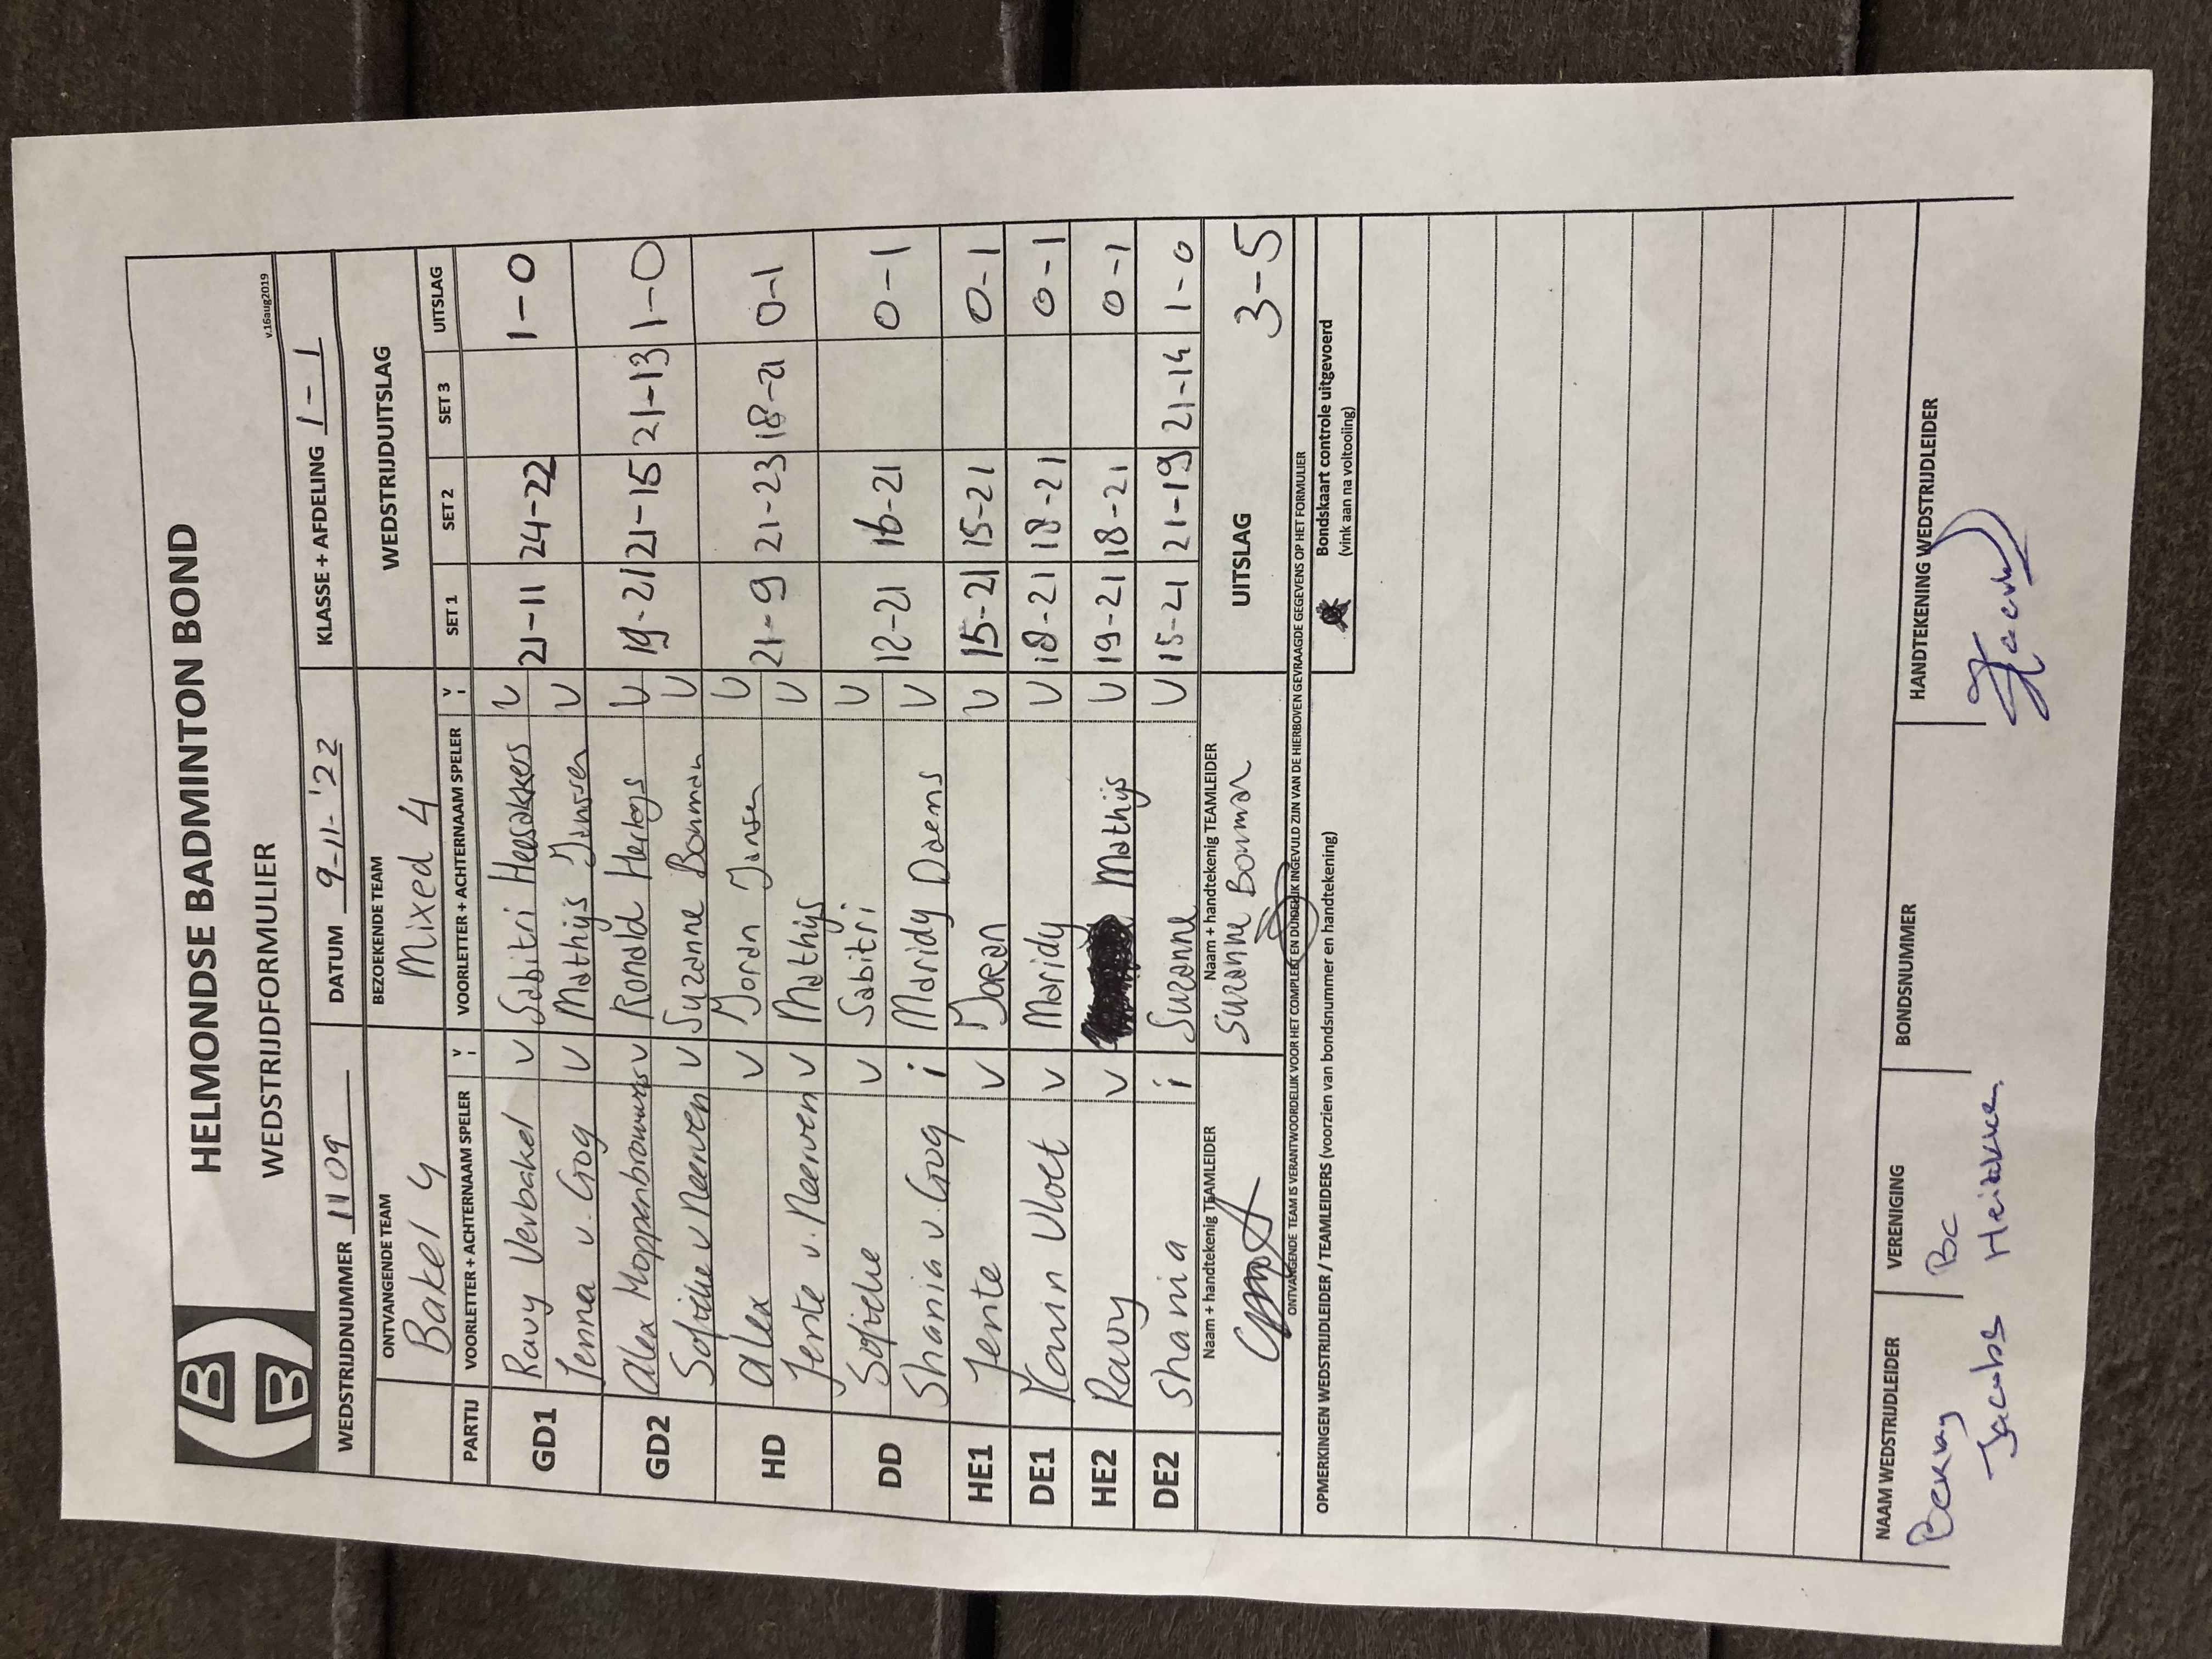 HELMONDSE BADMINTON BOND
WEDSTRIJDFORMULIER
v.16aug2019
WEDSTRIJDNUMMER 1109 DATUM 9-11-'22 KLASSE + AFDELING 1-1
ONTVANGENDE TEAM BEZOEKENDE TEAM WEDSTRIJDUITSLAG
Bakel 4 Mixed 4
PARTIJ VOORLETTER + ACHTERNAAM SPELER V i VOORLETTER + ACHTERNAAM SPELER V i SET 1 SET 2 SET 3 UITSLAG
GD1 Ravy Verbakel V Sabitri Heesakkers V 21-11 24-22 1-0
Jenna v. Gog V Mathijs Janssen V
GD2 Alex Moppenbrouwers V Ronald Hertogs V 19-21 21-15 21-13 1-0
Sofieke v Neerven V Suzanne Bouman V
HD Alex V Joran Jansen V 21-9 21-23 18-21 0-1
Jente v. Neerven V Mathijs V
DD Sofieke V Sabitri V 12-21 16-21 0-1
Shania v. Gog i Maridy Daems V
HE1 Jente V Joran V 15-21 15-21 0-1
DE1 Vloet V Maridy V 18-21 18-21 0-1
HE2 Ravy V Mathijs V 19-21 18-21 0-1
DE2 Shania i Suzanne V 15-21 21-19 21-14 1-0
Naam + handtekenig TEAMLEIDER Naam + handtekenig TEAMLEIDER UITSLAG 3-5
Suzanne Bouman
ONTVANGENDE TEAM IS VERANTWOORDELIJK VOOR HET COMPLEET EN DUIDELIJK INGEVULD ZIJN VAN DE HIERBOVEN GEVRAAGDE GEGEVENS OP HET FORMULIER
OPMERKINGEN WEDSTRIJDLEIDER / TEAMLEIDERS (voorzien van bondsnummer en handtekening)
Bondskaart controle uitgevoerd
(vink aan na voltooling)
NAAM WEDSTRIJDLEIDER VERENIGING BONDSNUMMER HANDTEKENING WEDSTRIJDLEIDER
Benny BC
Jacobs